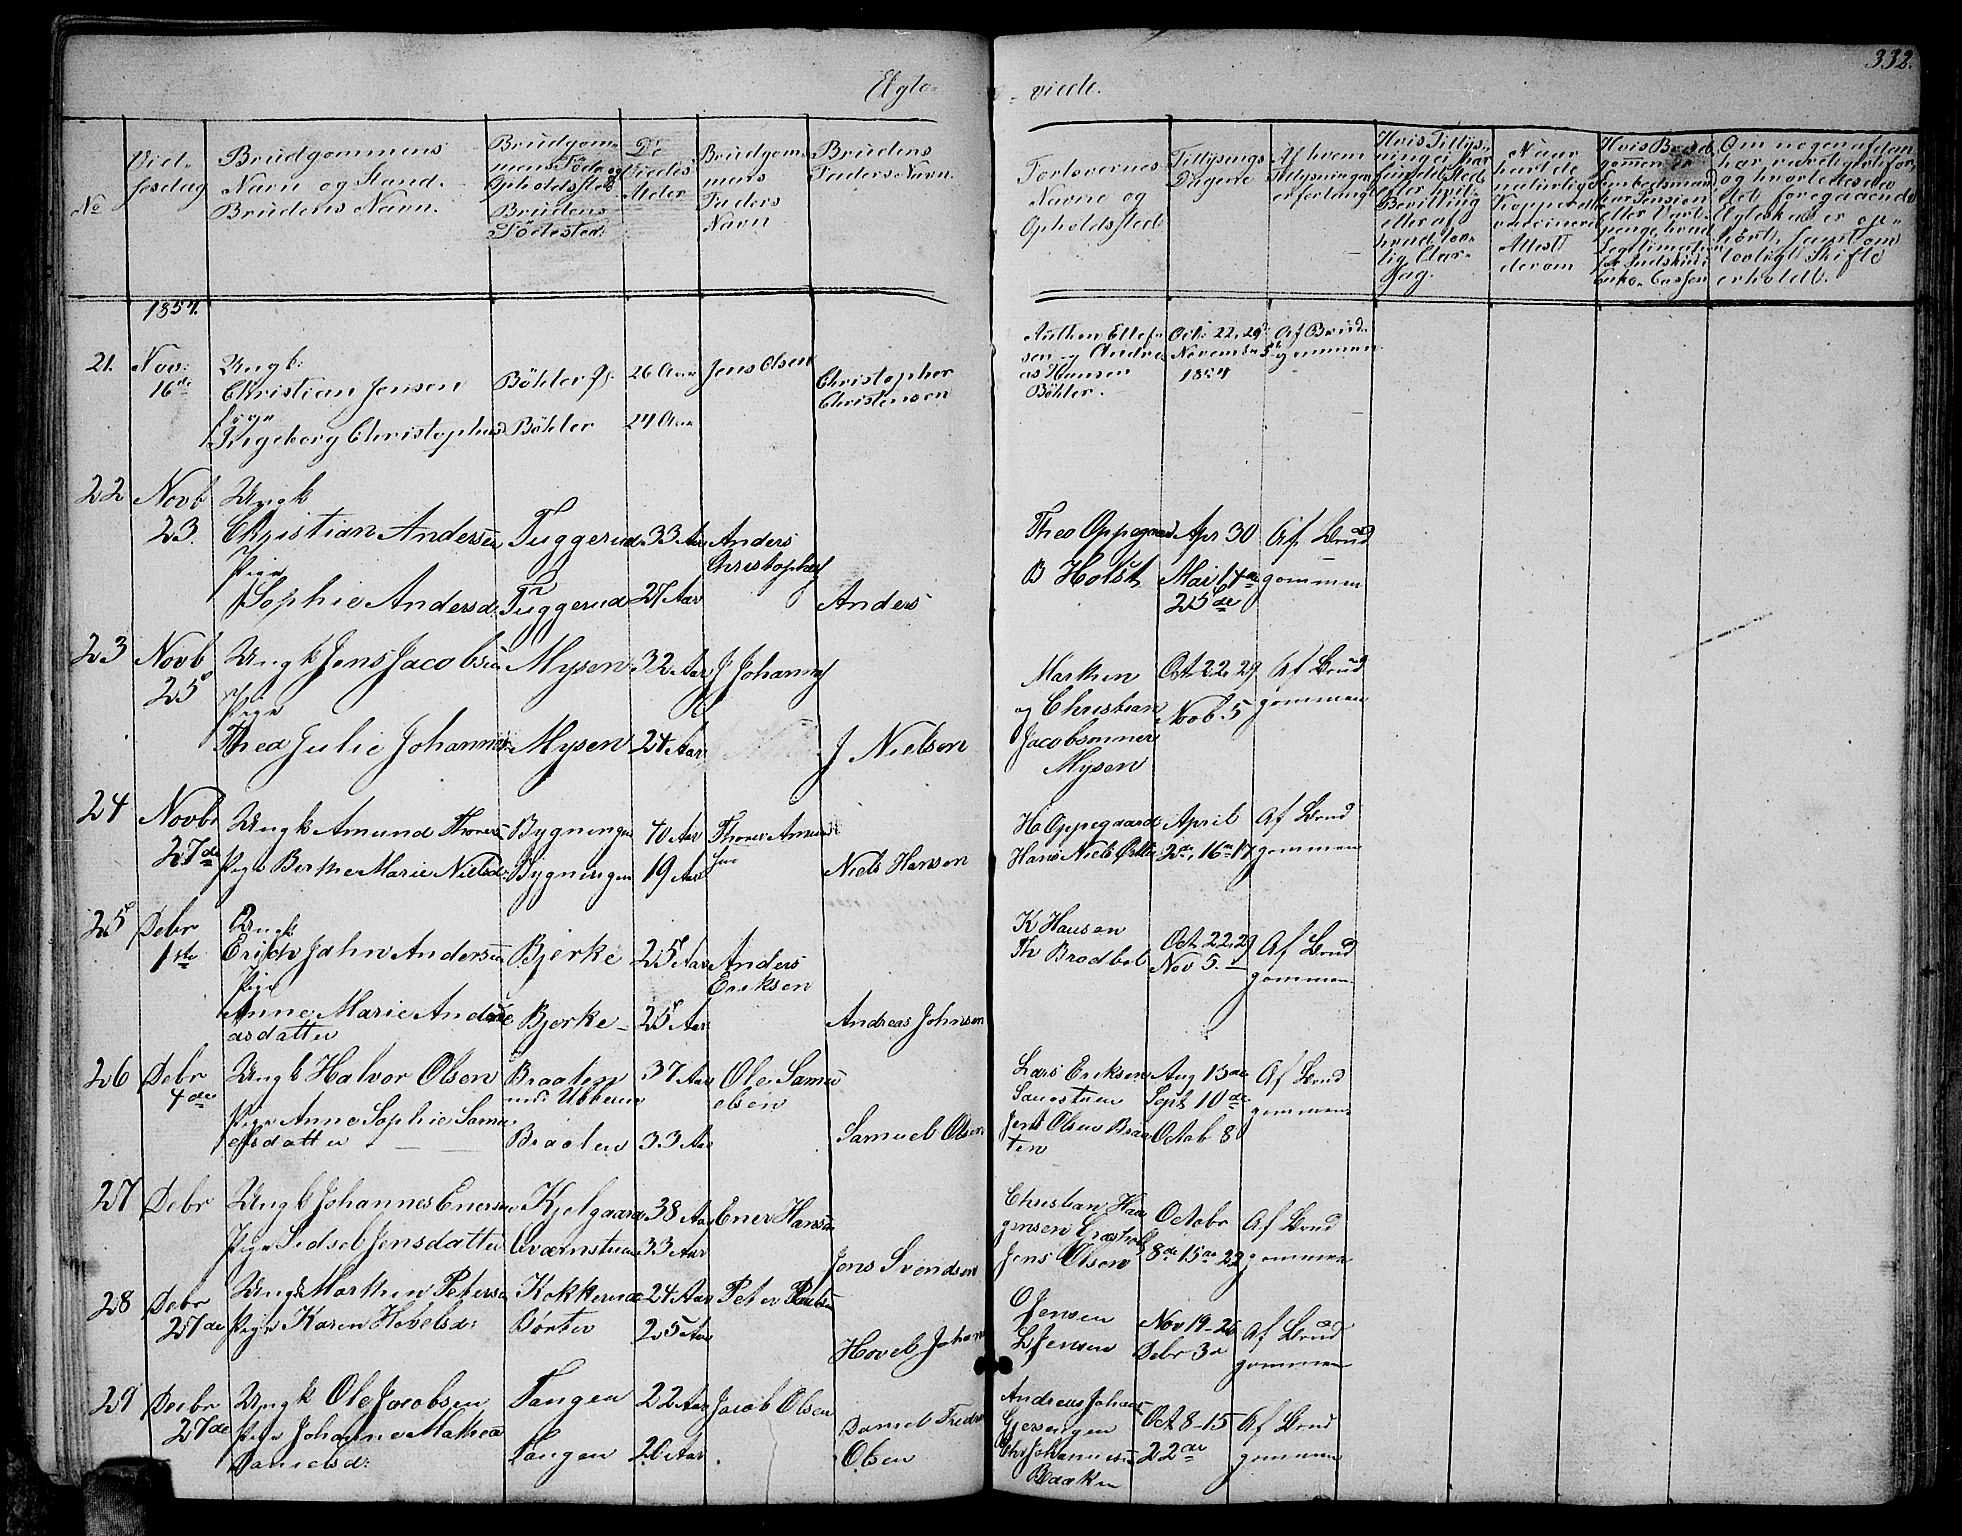 332.
Ægte-
-viede.
No
Viel-
sesdag
Brudgommens
Navn og Stand.
Brudens Navn.
Brudgom-
mens Føde og
Opholdssted
Brudens
Fødested.
De
Viedes
Alder
Brudgom-
mens
Faders
Navn
Brudens
Faders Navn.
Forlovernes
Navne og
Opholdssted
Tillysnings
Dagene
Af hvem
Tillysningen
er forlangt
Naar
har de
naturlige
Kopper eller
vaccinerede
Attest
derom
1854.
21.
Nov:
16de
Ungk:
Christian Jensen
Pige
Ingeborg Christophersd
Böhler
Böhler
26 Aar
24 Aar
Jens Olsen
Christopher
Christensen
Anthon Ellef-
sen og Andre-
as Hansen
Böhler.
Oct: 22, 29
Novem: 5
1854
Af Brud-
gommen
22
Novb
23.
Ungk
Christian Andersen
Pige
Sophie Andersd:
Tuggerud
Tuggerud
33 Aar
27 Aar
Anders
Christophers
Anders
Theo Oppegaard
B Holst
Apr 30
Mai 14de
25de
Af Brud
gommen
23
Novb
25
Ungk Jens Jacobsen
Pige
Thea Julie Johannes
Mysen
Mysen
32 Aar
24 Aar
J Johanns
J Nielsen
Marthin
og Christian
Jacobsønner
Mysen
Oct 22, 29
Novb 5
Af Brud
gommen
24
Novbr
27de
Ungk Amund Thoresen
Pige Berthe Marie Nielsd:
Bygningen
Bygningen
40 Aar
19 Aar
Thores Amund
sen
Niels Hansen
H Oppegaard
Hans Niels
April
2de, 16de 17
Af Brud
gommen
25
Debr
1ste
Ungk
Erich John Andersen
Pige
Anne Marie Andre
asdatter
Bjerke
Bjerke
25 Aar
25 Aar
Anders
Eriksen
Andreas Johnsen
K Hansen
Th Brodbøl
Oct 22, 29
Nov 5.
Af Brud
gommen
26
Debr
4de
Ungk Halvor Olsen
Pige Anne Sophie Samu
elsdatter
Braaten
und Ubberud
Braaten
37 Aar
33 Aar
Ole Samu
elsen
Samuel Olsen
Lars Eriksen
Sauestuen
Jens Olsen Braa
ten
Aug 13de
Sept 10de
Octob 8
Af Brud
gommen
27
Debr
Ungk Johannes Enersen
Pige Sidsel Jensdatter
Kjelgaard
Qværnstuen
38 Aar
33 Aar
Ener Hansen
Jens Svendsen
Christian Haa
gensen
Jens Olsen
Octobr
8de 15de 22
Af Brud
gommen
28
Debr
27de
Ungk Marthin Petersen
Pige Karen Hovelsd:
Kokkerud
Dørter
24 Aar
25 Aar
Peter Paulsen
Hovel Johan
O Jensen
L Jensen
Nov 19-26
Debr 3de
Af Brud
gommen
29
Debr
27de
Ungk Ole Jacobsen
Pige Johanne Mathea
Danielsd:
Tangen
Tangen
22 Aar
20 Aar
Jacob Olsen
Daniel Fredr
Olsen
Andreas Johans
Gjersingen
Chr Johannesen
Baaken
Oct 8-15
22de
Af Brud
gommen